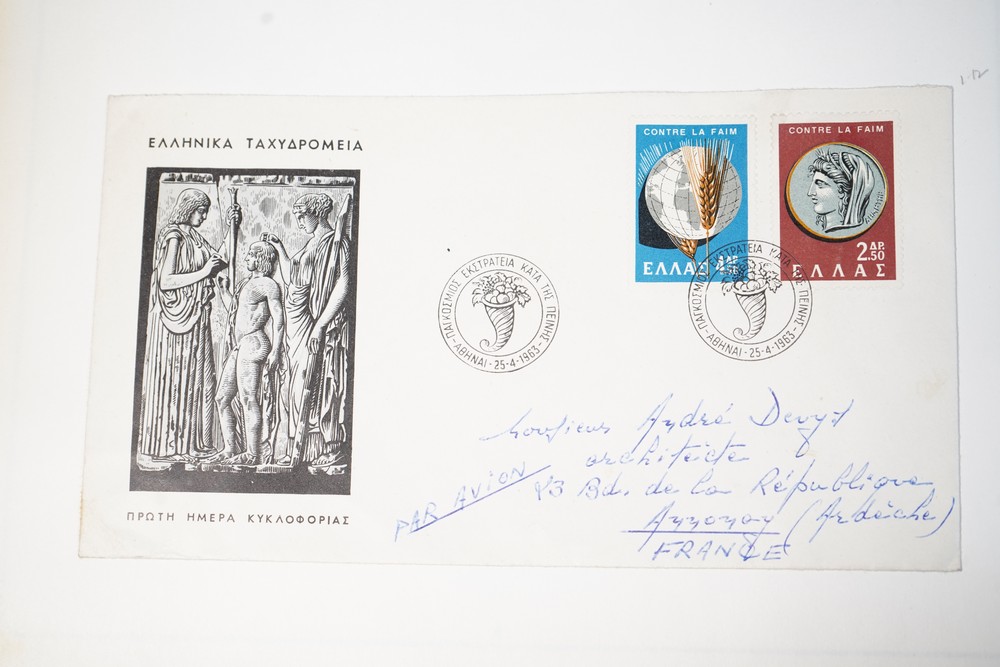 ΕΛΛΗΝΙΚΑ ΤΑΧΥΔΡΟΜΕΙΑ
ΠΡΩΤΗ ΗΜΕΡΑ ΚΥΚΛΟΦΟΡΙΑΣ
CONTRE LA FAIM
ΕΛΛΑΣ
CONTRE LA FAIM
2.50 ΔΡ
ΕΛΛΑΣ
ΠΑΓΚΟΣΜΙΟΣ ΕΚΣΤΡΑΤΕΙΑ ΚΑΤΑ ΤΗΣ ΠΕΙΝΗΣ
ΑΘΗΝΑΙ-25-4-1963
ΠΑΓΚΟΣΜΙΟΣ ΕΚΣΤΡΑΤΕΙΑ ΚΑΤΑ ΤΗΣ ΠΕΙΝΗΣ
ΑΘΗΝΑΙ-25-4-1963
Monsieur André
architecte
PAR AVION
Bd. de la République
Annonay (Ardèche)
FRANCE